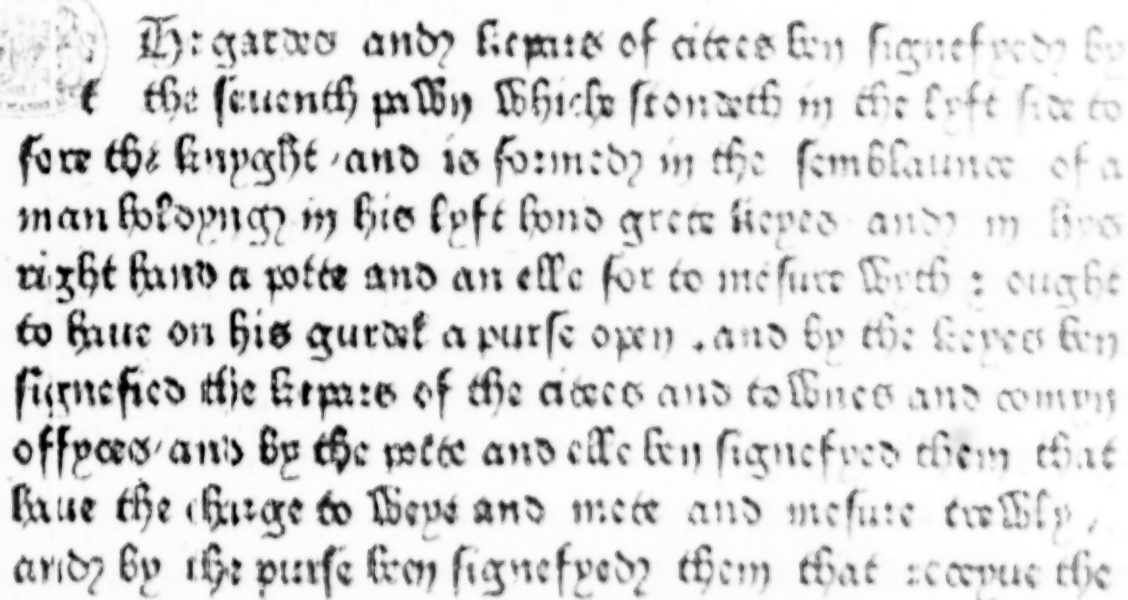 He gardes and kepars of citees ben signefyed by
t the seuenth pawn whiche stondeth in the lyft side to
fore the knyght / and is formed in the semblaunce of a
man holdyng in his lyft hond grete keyes and in hys
right hand a potte and an elle for to mesure wyth : ought
to haue on his gurdel a purse open . and by the keyes ben
signefied the kepars of the citees and townes and comyn
offyces / and by the potte and elle ben signefyed them that
haue the charge to weye and mete and mesure trewly /
and by the purse ben signefyed them that receyue the